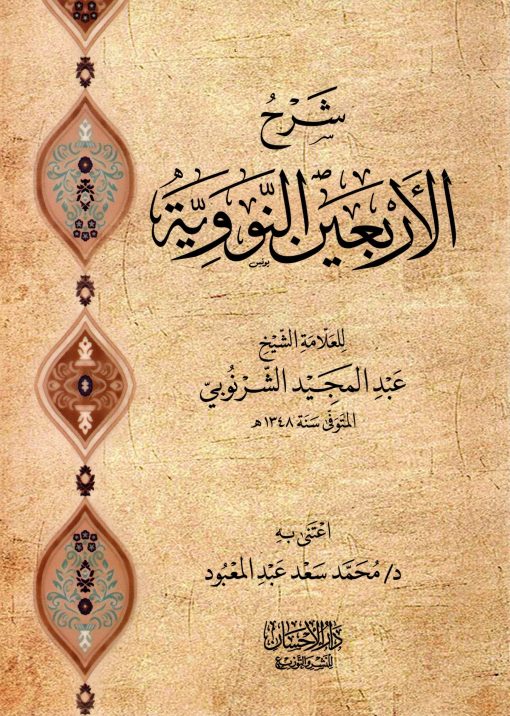 شَرْحُ
الأَرْبَعِينَ النَّوَوِيَّةِ
يونس
لِلعَلَّامَةِ الشَّيْخِ
عَبْدِ المَجِيْدِ الشَّرْنُوبِيِّ
المُتَوَفَّى سَنَة ١٣٤٨ هـ
اعْتَنَى بِهِ
د/ مُحَمَّد سَعْد عَبْدِ المَعْبُود
دَارُ الإِحْسَان
لِلنَّشْرِ وَالتَّوْزِيعِ